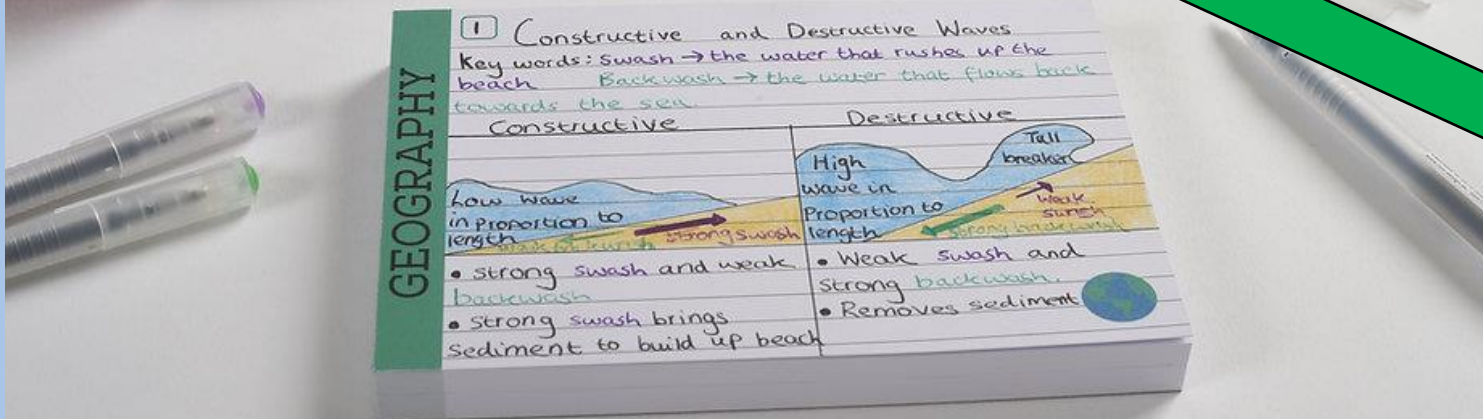 GEOGRAPHY
1 Constructive and Destructive Waves
Key words: Swash → the water that rushes up the
beach Backwash → the water that flows back
towards the sea
Constructive
Low wave
in proportion to
length
strong swash
• strong swash and weak
backwash
• strong swash brings
sediment to build up beach
Destructive
High
wave in
Proportion to
length
Tall
breaker
Weak
swash
strong backwash
• Weak swash and
strong backwash.
• Removes sediment